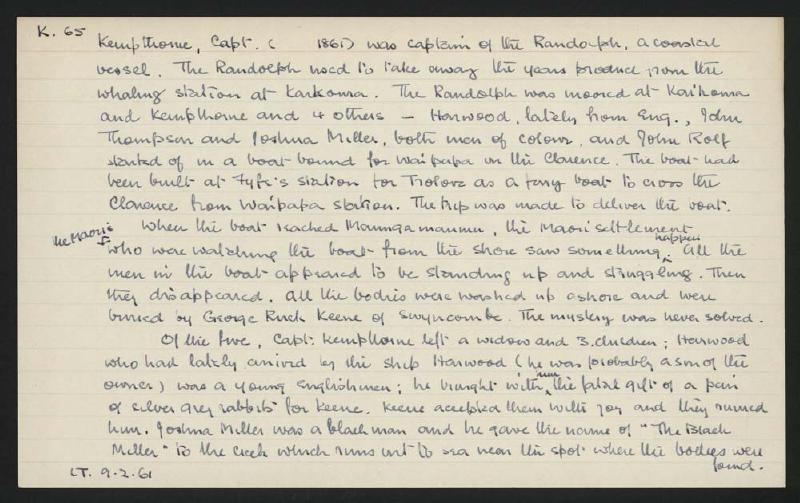 K. 65
Kempthorne, Capt. (      1861) was captain of the Randolph, a coastal
vessel. The Randolph used to take away the years produce from the
whaling station at Kaikoura. The Randolph was moored at Kaikoura
and Kempthorne and 4 others – Harwood, lately from Eng., John
Thompson and Joshua Miller, both men of colour, and John Rolf
started of in a boat bound for Waipapa on the Clarence. The boat had
been built at Fyfe's station for Trolove as a ferry boat to cross the
Clarence from Waipapa station. The trip was made to deliver the boat.
When the boat reached Maungamaunu, the Maori settlement
the Maoris
who were watching the boat from the shore saw something happen. All the
men in the boat appeared to be standing up and struggling. Then
they disappeared. All the bodies were washed up ashore and were
buried by George Rich Keene of Swyncombe. The mystery was never solved.
Of the five, Capt. Kempthorne left a widow and 3 children; Harwood
who had lately arrived by the ship Harwood (he was probably a son of the
owner) was a young Englishmen; he brought with him the fatal gift of a pair
of silver grey rabbits for Keene. Keene accepted them with joy and they ruined
him. Joshua Miller was a black man and he gave the name of "The Black
Miller" to the creek which runs into sea near the spot where the bodies were
found.
LT. 9.2.61